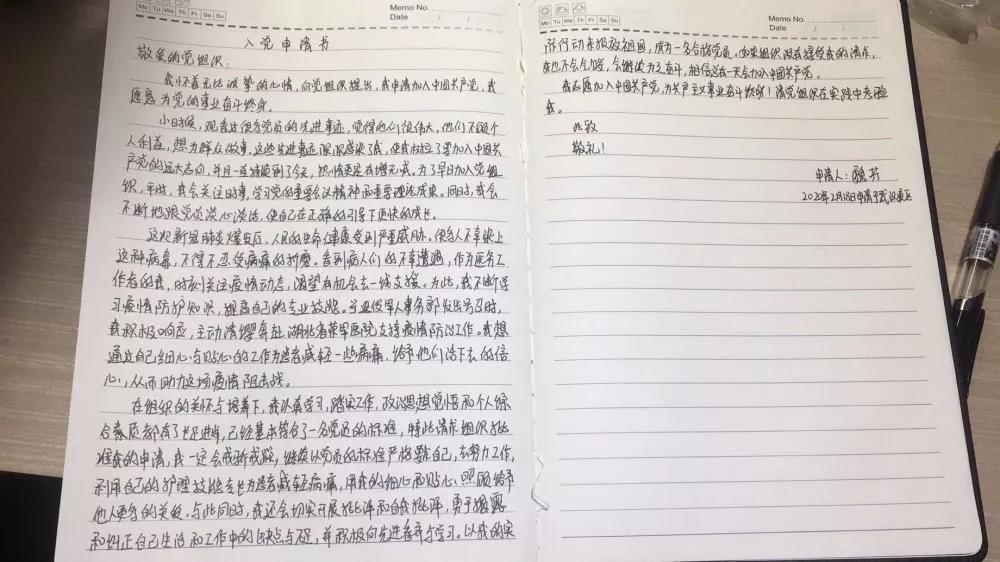 Mo Tu We Th Fr Sa Su
Memo No.
Date / /
入党申请书
敬爱的党组织:
我怀着无比诚挚的心情,向党组织提出,我申请加入中国共产党,我
愿意为党的事业奋斗终身。
小时候,观看过很多党员的先进事迹,觉得他们很伟大,他们不顾个
人利益,想为群众做事,这些先进事迹深深感染了我,使我树立了要加入中国共
产党的远大志向,并且一直持续到了今天,热情更是有增无减。为了早日加入党组
织,平时,我会关注时事,学习党的重要会议精神和重要理论成果。同时,我会
不断地跟党员谈心谈话,使自己在正确的引导下更快的成长。
这次新冠肺炎爆发后,人民的生命健康受到严重威胁。很多人不幸染上
这种病毒,不得不忍受病痛的折磨。看到病人们的不幸遭遇,作为医务工
作者的我,时刻关注疫情动态,渴望有机会去一线支援。为此,我不断学
习疫情防护知识,提高自己的专业技能。当退役军人事务部发出号召时,
我积极响应,主动请缨奔赴湖北省荣军医院支持疫情防治工作。我想
通过自己细心与贴心的工作为患者减轻一些病痛,给予他们活下去的信
心,从而助力这场疫情阻击战。
在组织的关怀与培养下,我认真学习,踏实工作,政治思想觉悟和个人综
合素质都有了长足进步,已经基本符合了一名党员的标准,特此请求组织批
准我的申请,我一定会戒骄戒躁,继续以党员的标准严格要求自己,去努力工作,
利用自己的护理技能专长为患者减轻病痛,用我的细心和贴心、照顾给予
他人更多的关爱。与此同时,我还会切实开展批评和自我批评,勇于揭露
和纠正自己生活和工作中的缺点与不足,并积极向先进看齐与学习。以我的实
Mo Tu We Th Fr Sa Su
Memo No.
Date / /
际行动来报效祖国,成为一名合格党员。如果组织没有接受我的请求,
我也不会气馁,会继续为之奋斗,相信总有一天会加入中国共产党。
我志愿加入中国共产党,为共产主义事业奋斗终身!请党组织在实践中考验
我。
此致
敬礼!
申请人:
2020年2月18日申请于武汉